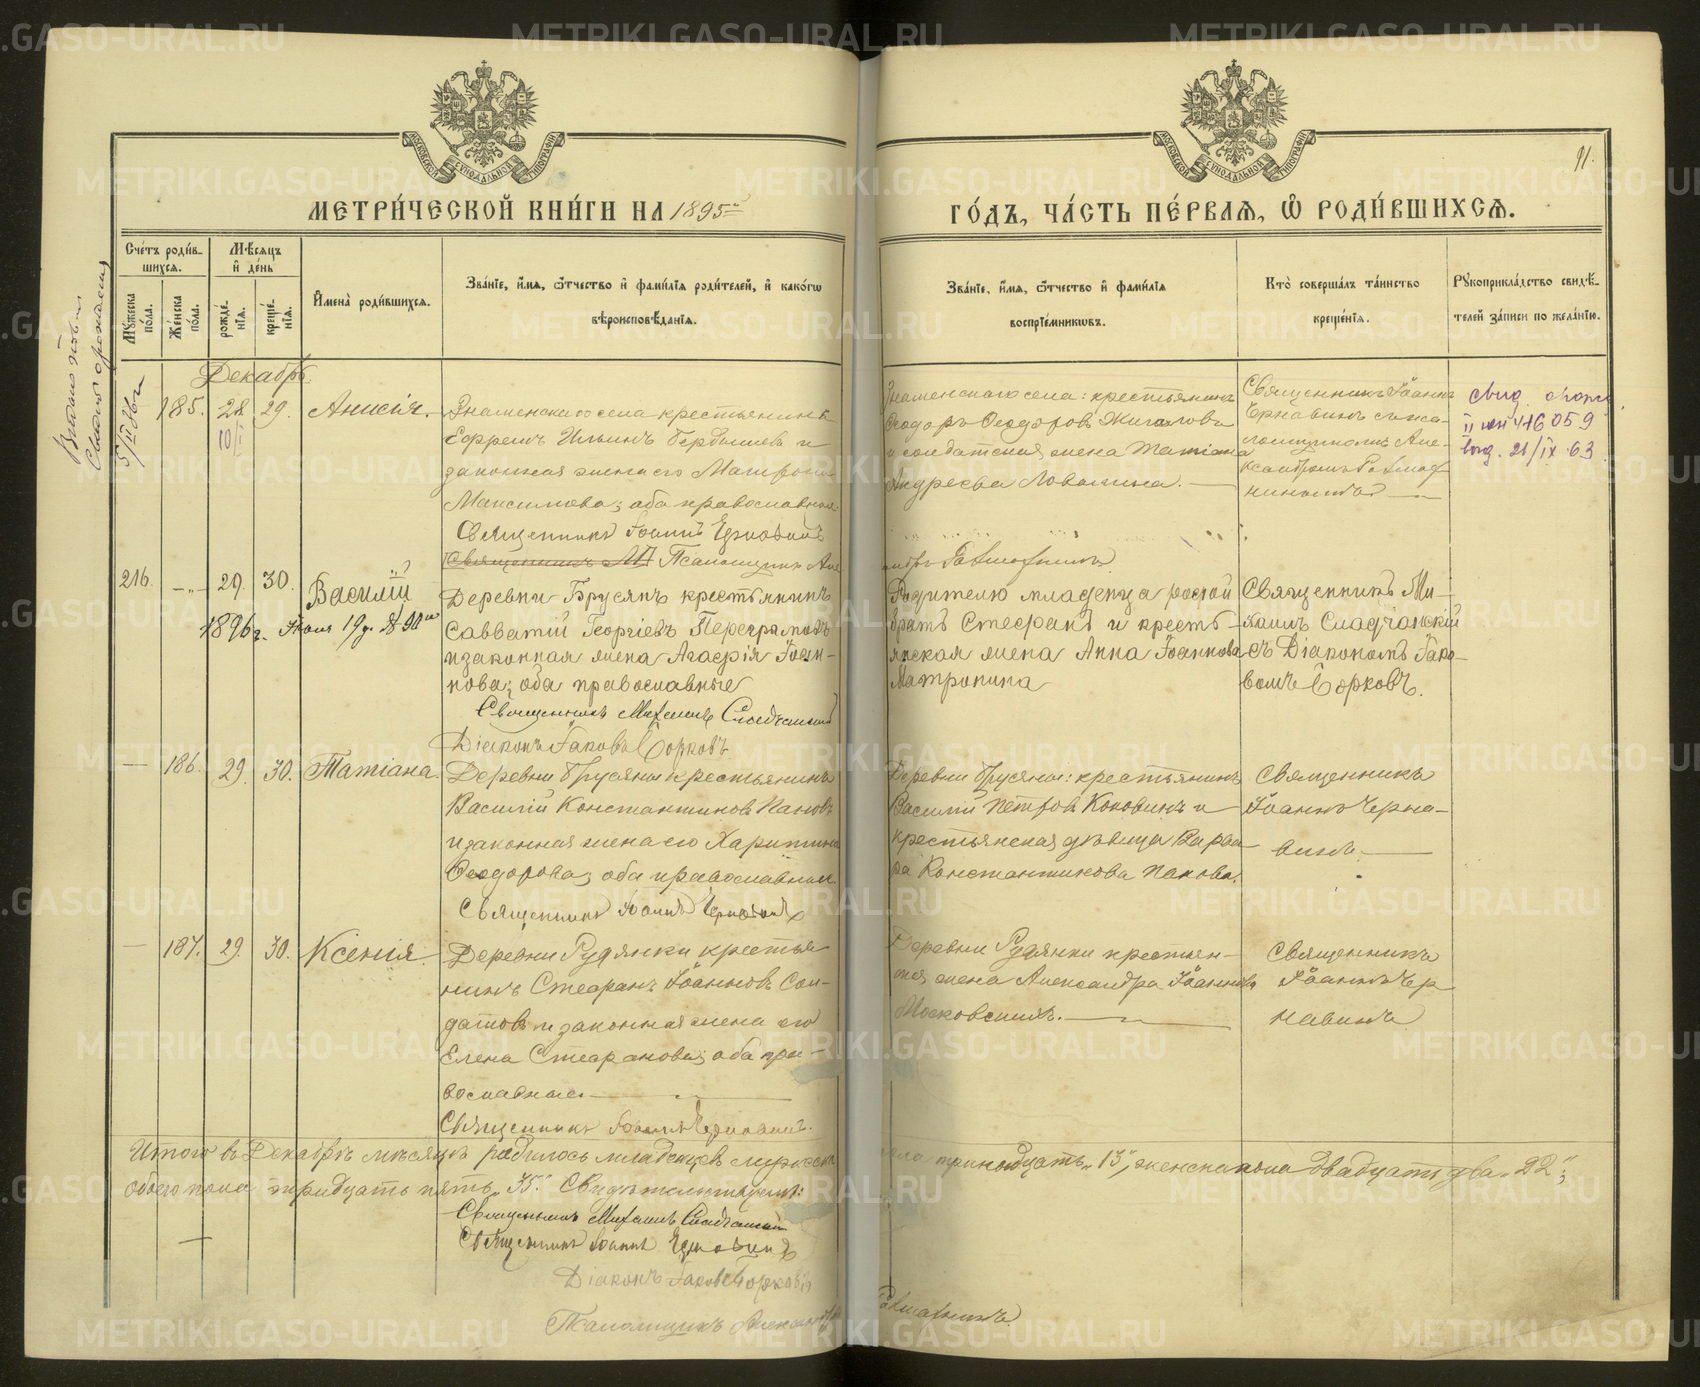 МЕТРИ́ЧЕСКОЙ КНИ́ГИ НА 1895й
ГО́ДЪ, ЧА́СТЬ ПЕ́РВАЯ, Ѡ҆ РОДИ́ВШИХСЯ.
91.
МОСКОВСКОЙ СѴНОДАЛЬНОЙ ТИПОГРАФІИ
МОСКОВСКОЙ СѴНОДАЛЬНОЙ ТИПОГРАФІИ
Сче́тъ роди́вшихся.
Мѣ́сяцъ и҆ де́нь
Мꙋ́жеска по́ла.
Же́нска по́ла.
рожде́нїя.
креще́нїя.
И҆мена̀ роди́вшихся.
Зва́нїе, и҆́мя, ѻ҆́тчество и҆ фами́лїя роди́телей, и҆ како́гѡ вѣроисповѣ́данїя.
Зва́нїе, и҆́мя, ѻ҆́тчество и҆ фами́лїя воспрїе́мникѡвъ.
Кто̀ соверша́лъ та́инство креще́нїя.
Рꙋкоприкла́дство свидѣ́телей за́писи по жела́нїю.
Декабрь.
185. 28 29. Анисія.
Знаменскаго села крестьянинъ
Ефремъ Ильинъ и
законная жена его Матрона
Максимова; оба православные.
Священникъ Іоаннъ Чернавинъ
Псаломщикъ
Знаменскаго села: крестьянинъ
Ѳеодоръ Ѳеодоровъ Жигалов и
солдатская жена Татіана
Андреева
Священникъ Іоаннъ
Чернавинъ съ псаломщикомъ
II 416059
21/IX 63
216. — 29. 30. Василій
1896 г. 19 д. № 90
Деревни Брусянъ крестьянинъ
Савватій Георгіевъ
и законная жена Агафія Іоан-
нова; оба православные
Священникъ Михаилъ Сладчанскій
Діаконъ Іаковъ Горковъ
Родителю младенца родной
братъ Стефанъ и кресть-
янская жена Анна Іоаннова
Матронина
Священникъ Ми-
хаилъ Сладчанскій
съ Діакономъ Іако-
вомъ Горковъ.
— 186. 29. 30. Татіана.
Деревни Брусяны крестьянинъ
Василій Константиновъ Пановъ
и законная жена его Харитина
Ѳеодорова; оба православные.
Священникъ Іоаннъ Чернавинъ
Деревни Брусяны: крестьянинъ
Василій Петровъ Коковинъ и
крестьянская дѣвица Варва-
ра Константинова Панова.
Священникъ
Іоаннъ Черна-
винъ.
— 187. 29. 30. Ксенія.
Деревни Рудянки крестья-
нинъ Стефанъ Іоанновъ Сол-
датовъ и законная жена его
Елена Стефанова; оба пра-
вославные.
Священникъ Іоаннъ Чернавинъ.
Деревни Рудянки крестьян-
ская жена Александра Іоаннова
Московскихъ.
Священникъ
Іоаннъ Чер
навинъ
Итого въ Декабрѣ мѣсяцѣ родилось младенцевъ мужеска
пола тринадцать „13", женска пола двадцать два „22";
обоего пола тридцать пять „35". Свидѣтельствуемъ:
Священникъ Михаилъ Сладчанскій
Священникъ Іоаннъ Чернавинъ
Діаконъ Іаковъ Горковъ
Псаломщикъ Александръ
METRIKI.GASO-URAL.RU